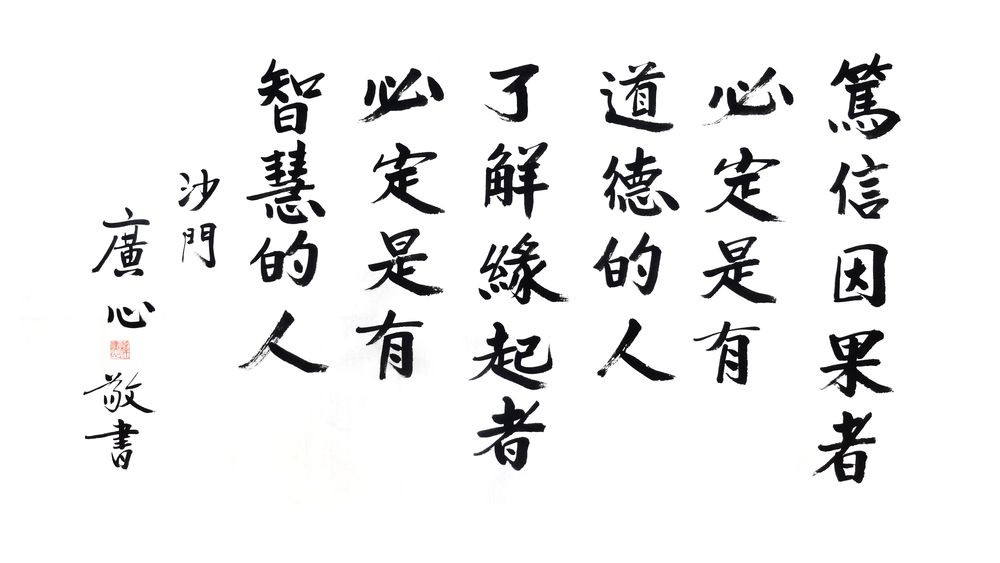 篤信因果者
必定是有
道德的人
了解緣起者
必定是有
智慧的人
沙門
廣心敬書